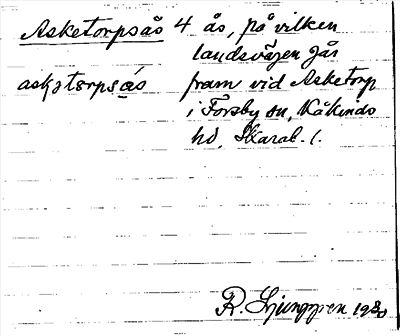 Asketorpsås 4 ås, på vilken
landsvägen går
askɔtɔrpsás fram vid Asketorp
i Forsby sn, Kåkinds
hd, Skarab. l.
R. Ljunggren 1930